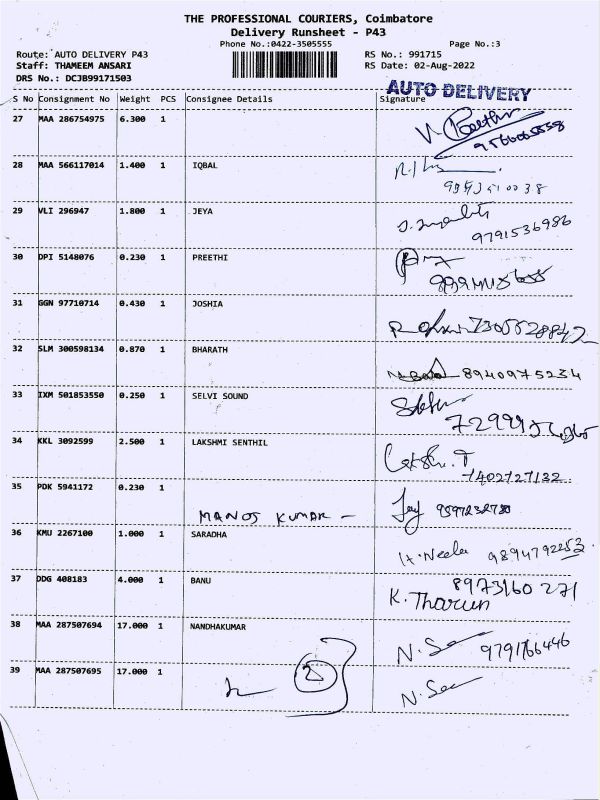 THE PROFESSIONAL COURIERS, Coimbatore
Delivery Runsheet - P43
Phone No.:0422-3505555 Page No.:3
Route: AUTO DELIVERY P43 RS No.: 991715
Staff: THAMEEM ANSARI RS Date: 02-Aug-2022
DRS No.: DCJB99171503
AUTO DELIVERY
S No Consignment No Weight PCS Consignee Details Signature
27 MAA 286754975 6.300 1
28 MAA 566117014 1.400 1 IQBAL
29 VLI 296947 1.800 1 JEYA
9791536986
30 DPI 5148076 0.230 1 PREETHI
31 GGN 97710714 0.430 1 JOSHIA
7305528842
32 SLM 300598134 0.870 1 BHARATH
8940975234
33 IXM 501853550 0.250 1 SELVI SOUND
34 KKL 3092599 2.500 1 LAKSHMI SENTHIL
7402727132
35 PDK 5941172 0.230 1
MANOJ KUMAR -
36 KMU 2267100 1.000 1 SARADHA
H. Neela 9894792253
37 DDG 408183 4.000 1 BANU
8973160 271
K. Tharun
38 MAA 287507694 17.000 1 NANDHAKUMAR
9791766446
39 MAA 287507695 17.000 1